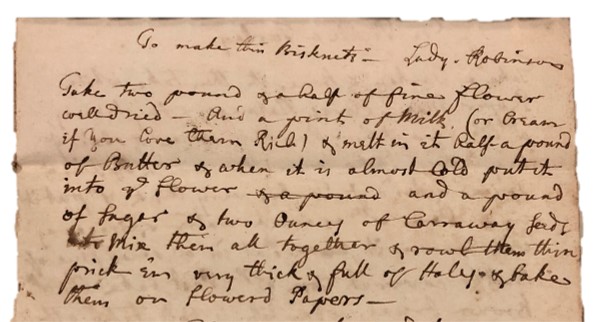 To make thin Bisknets – Lady Robinson
Take two pound & a half of fine flower
well dried – And a pint of Milk (or Cream
if you love them Rich) & melt in it half a pound
of Butter & when it is almost Cold put it
into ye flower & a pound and a pound
of Suger & two Ounces of Carraway Seeds
Mix them all together & rowl them thin
prick 'em very thick & full of Holes & bake
them on flowerd Papers –